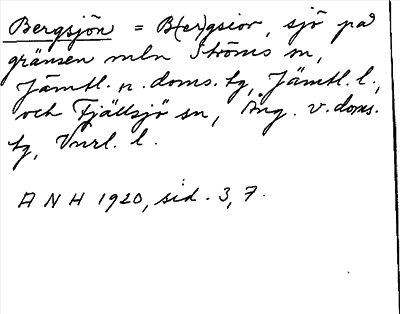 Bergsjön = B(er)gsior, sjö på
gränsen mln Ströms sn,
Jämtl. n. doms. tg, Jämtl. l.,
och Fjällsjö sn, Ång. v. doms.
tg, Vnrl. l.
A N H 1920, sid. 3, 7.